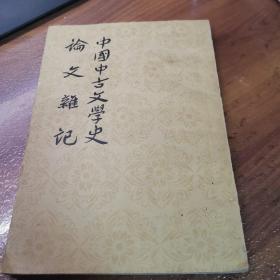 中國中古文學史
論文雜记